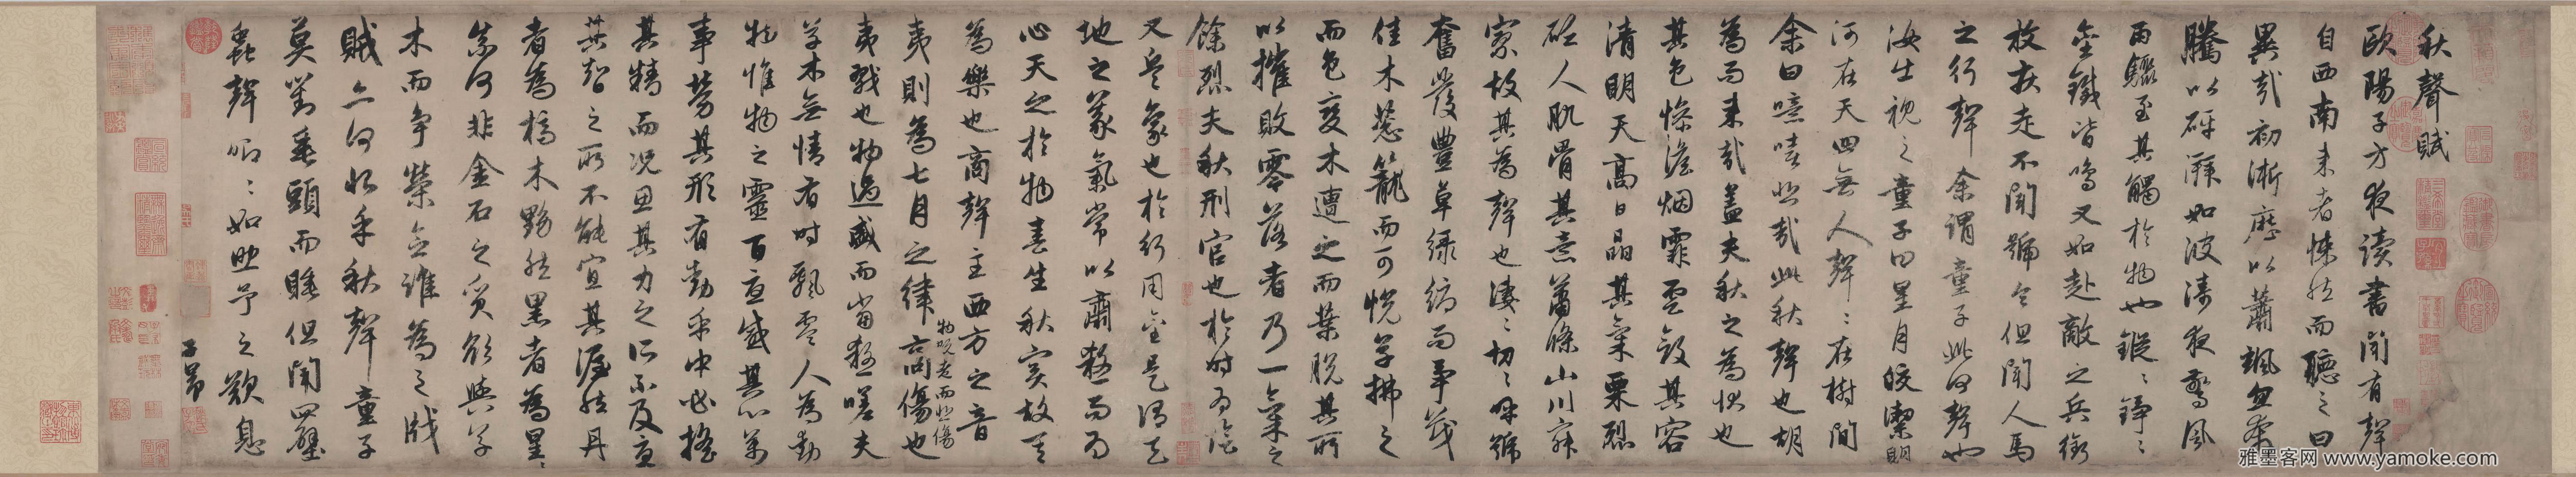 秋聲賦
歐陽子方夜读書聞有聲
自西南来者悚然而聽之曰
異哉初淅瀝以蕭颯忽奔
騰以砰湃如波涛夜驚風
雨驟至其觸於物也鏦〻錚〻
金鐵皆鳴又如赴敵之兵銜
枚疾走不聞號令但聞人馬
之行聲余謂童子此何聲也
汝出視之童子曰星月皎潔明
河在天四無人聲〻在樹間
余曰噫嘻悲哉此秋聲也胡
為而来哉盖夫秋之為状也
其色惨澹烟霏雲斂其容
清明天高日晶其氣栗烈
砭人肌骨其意蕭條山川寂
寥故其為聲也淒〻切〻呼號
奮發豐草緑縟而争茂
佳木葱籠而可悦草拂之
而色變木遭之而葉脱其所
以摧敗零落者乃一氣之
餘烈夫秋刑官也於時為陰
又兵象也於行用金是謂天
地之義氣常以肅殺而為
心天之於物春生秋實故其
為樂也商聲主西方之音
夷則為七月之律商傷也
物既老而悲傷
夷戮也物過盛而當殺嗟夫
草木無情有時飄零人為動
物惟物之靈百憂感其心萬
事勞其形有動乎中必摇
其精而况思其力之所不及憂
其智之所不能宜其渥然丹
者為槁木黟然黑者為星〻
奈何非金石之質欲與草
木而争榮念誰為之戕
賊亦何恨乎秋聲童子
莫對垂頭而睡但聞四壁
蟲聲唧〻如助予之歎息
子昂
雅墨客网 www.yamoke.com